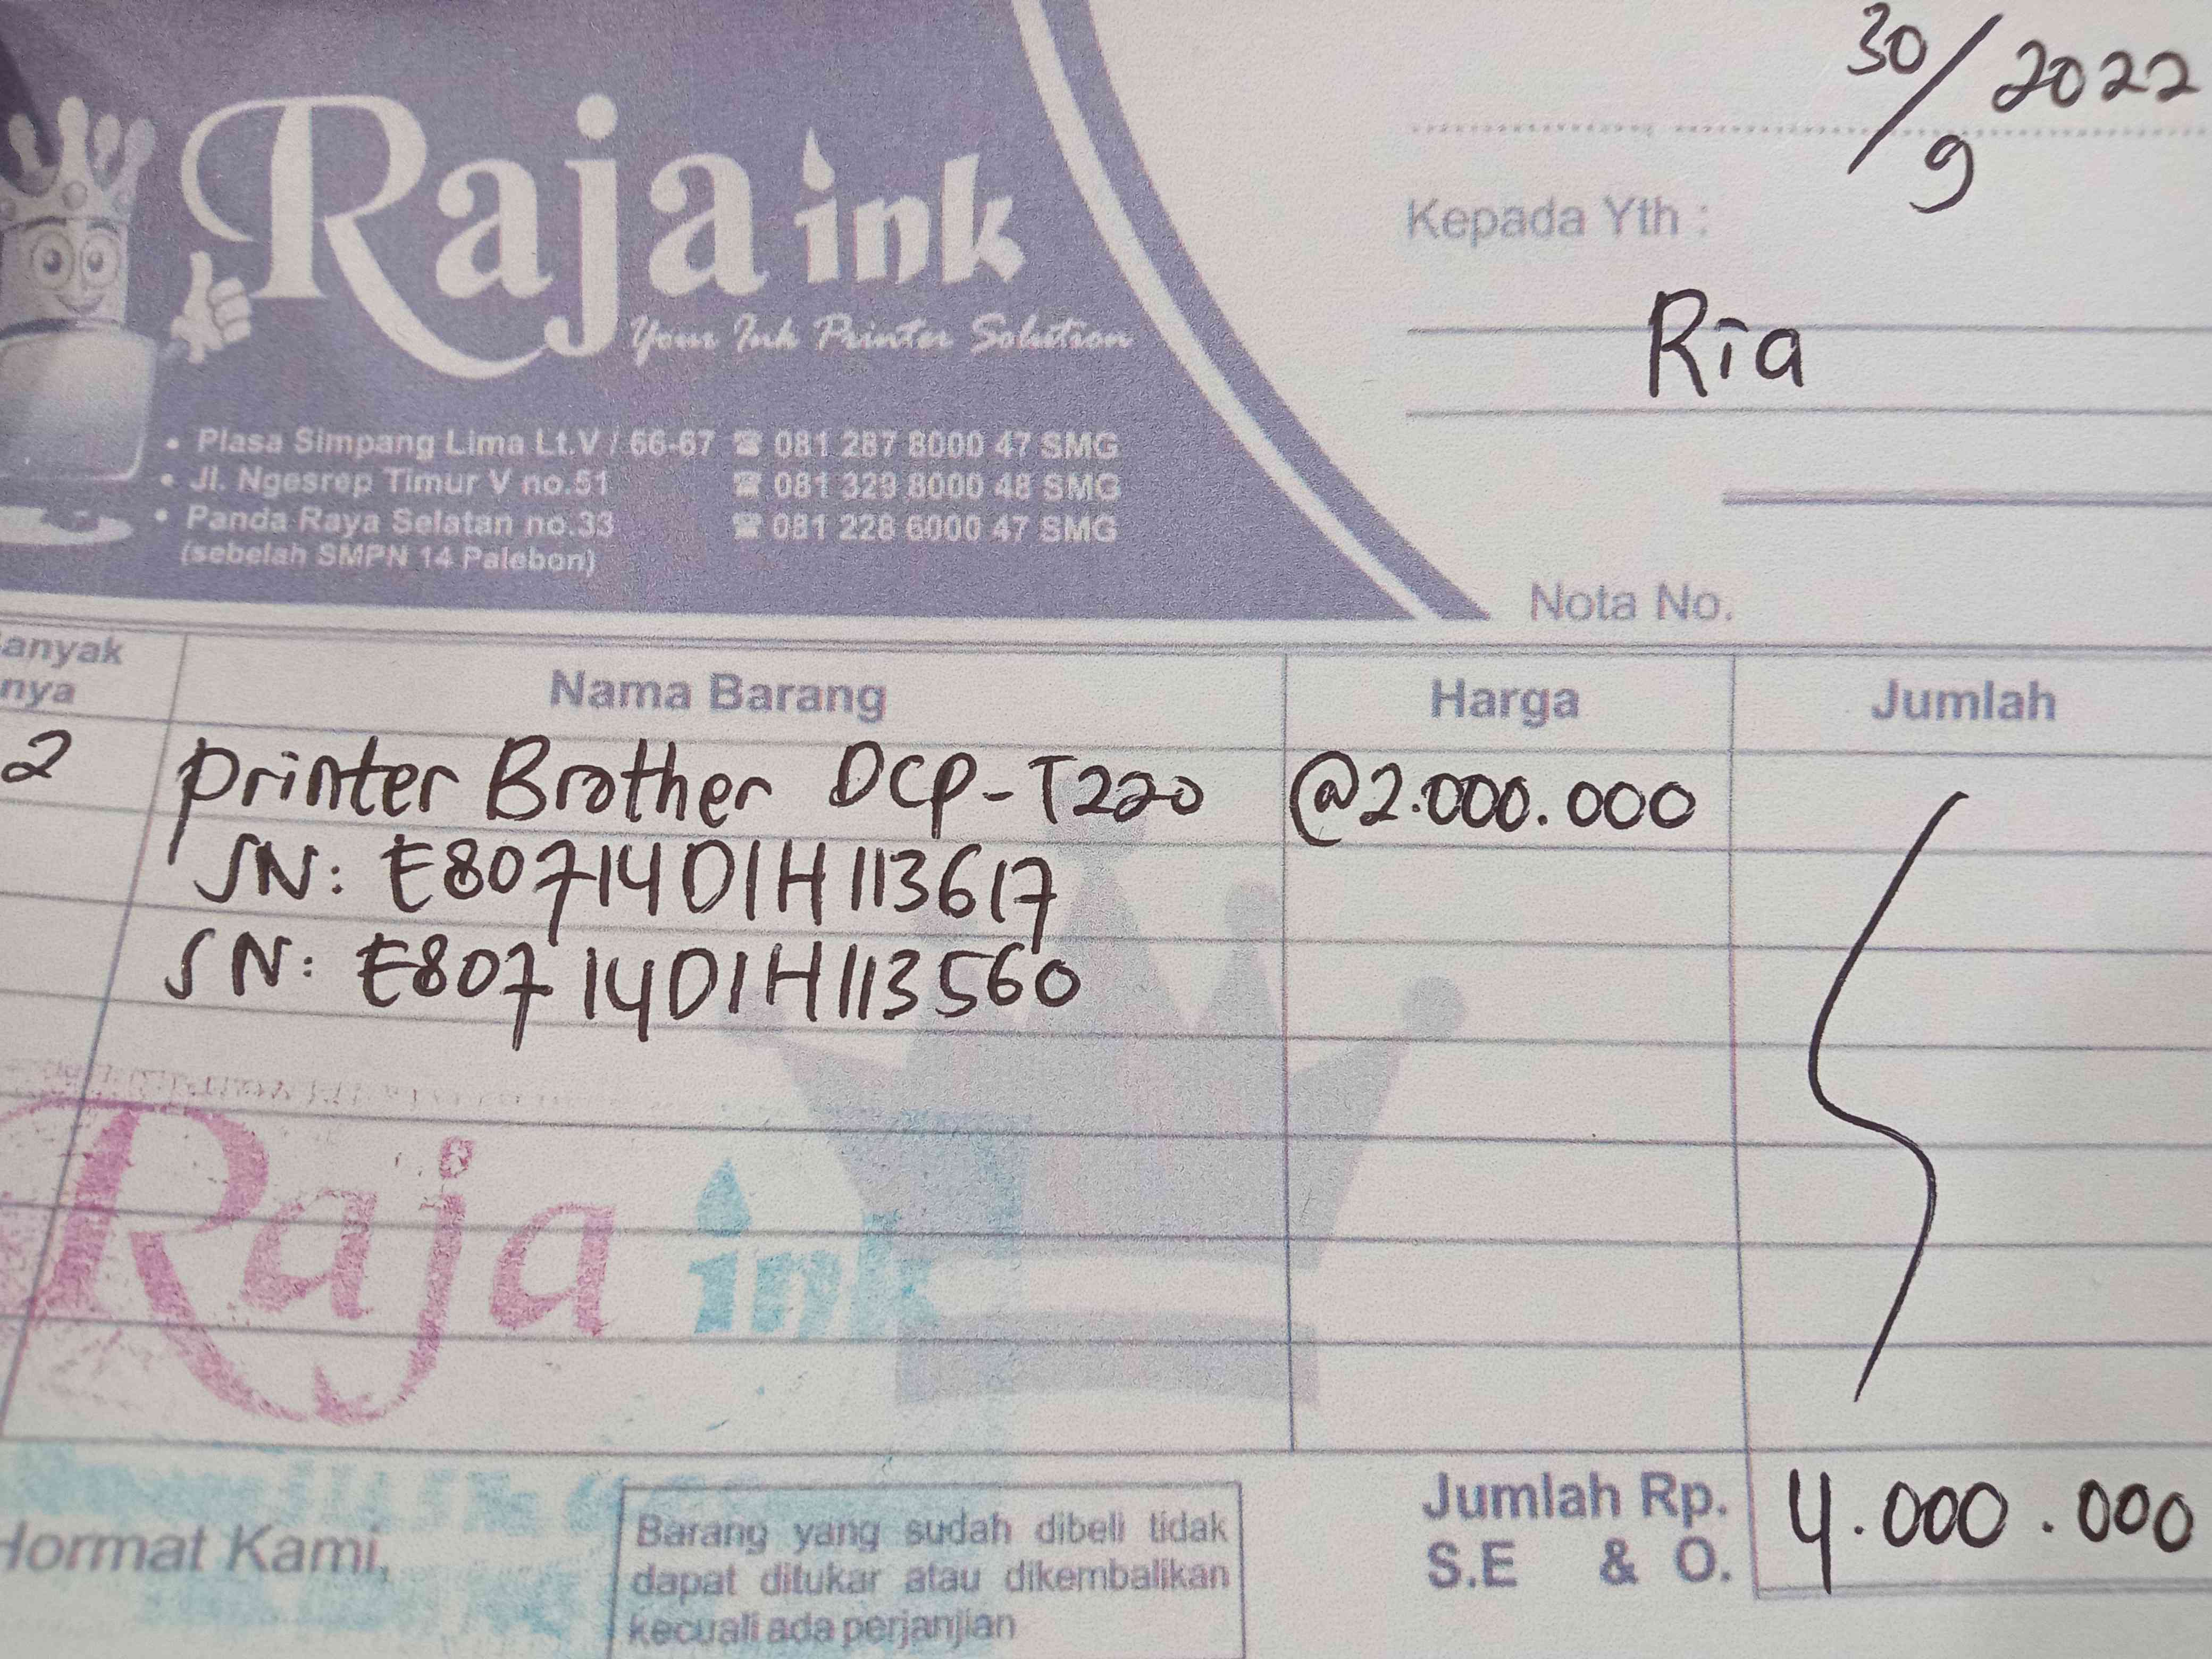 30/9 2022
Raja ink
Your Ink Printer Solution
Kepada Yth :
Ria
• Plasa Simpang Lima Lt.V / 66-67 ☎ 081 287 8000 47 SMG
• Jl. Ngesrep Timur V no.51 ☎ 081 329 8000 48 SMG
• Panda Raya Selatan no.33 ☎ 081 228 6000 47 SMG
(sebelah SMPN 14 Palebon)
Nota No.
anyak
nya
Nama Barang Harga Jumlah
2 Printer Brother DCP-T220 @2.000.000
SN: E80714D1H113617
SN: E80714D1H113560
Raja ink
Jumlah Rp. 4.000.000
S.E & O.
Hormat Kami,
Barang yang sudah dibeli tidak
dapat ditukar atau dikembalikan
kecuali ada perjanjian